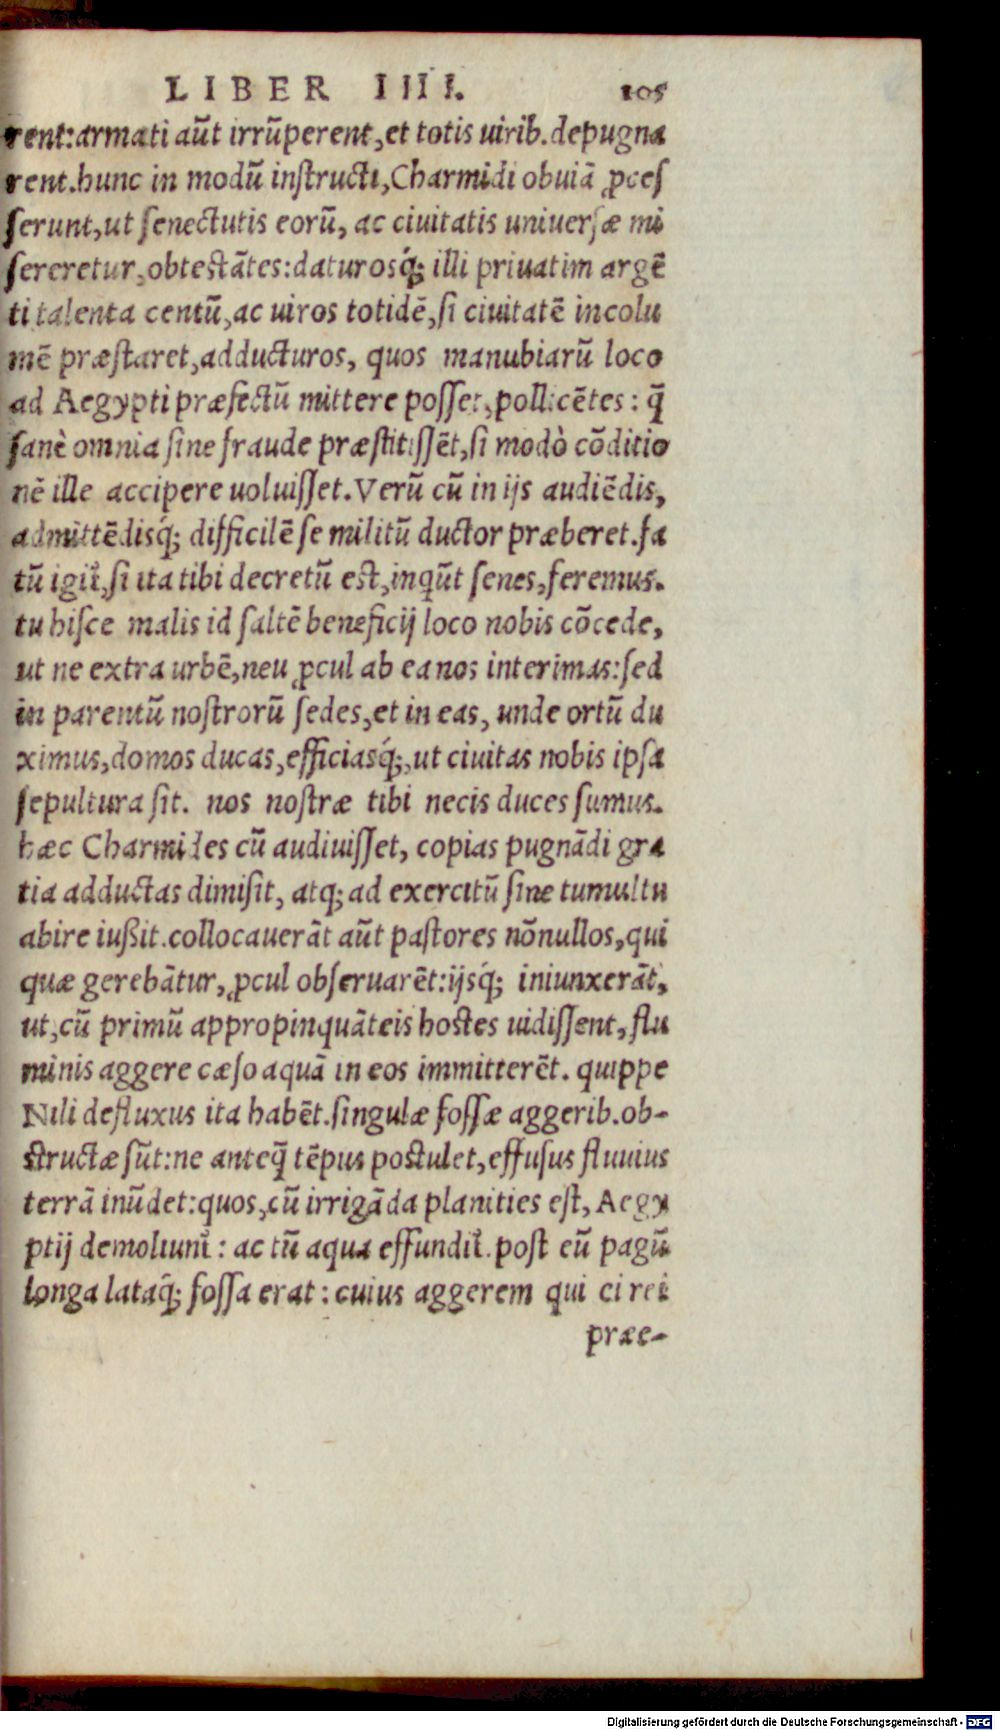 LIBER IIII. 105
rent:armati aūt irrūperent,et totis uirib.depugna
rent.hunc in modū inſtructi,Charmidi obuiā ꝓceſ
ſerunt,ut ſenectutis eorū, ac ciuitatis uniuerſæ mi
ſereretur,obteſtātes:daturosq́; illi priuatim argē
ti talenta centū,ac uiros totidē,ſi ciuitatē incolu
mē præſtaret,adducturos, quos manubiarū loco
ad Aegypti præfectū mittere poſſet,pollicētes: q̄
ſanè omnia ſine fraude præſtitiſſēt,ſi modò cōditio
nē ille accipere uoluiſſet.Verū cū in ijs audiēdis,
admittēdisq́; difficilē ſe militū ductor præberet.fa
tū igit̃,ſi ita tibi decretū eſt,inqūt ſenes,feremus.
tu hiſce malis id ſaltē beneficij loco nobis cōcede,
ut ne extra urbē,neu ꝓcul ab ea nos interimas:ſed
in parentū noſtrorū ſedes,et in eas, unde ortū du
ximus,domos ducas,efficiasq́;,ut ciuitas nobis ipſa
ſepultura ſit. nos noſtræ tibi necis duces ſumus.
hæc Charmides cū audiuiſſet, copias pugnādi gra
tia adductas dimiſit, atq; ad exercitū ſine tumultu
abire iußit.collocauerāt aūt paſtores nōnullos,qui
quæ gerebātur,ꝓcul obſeruarēt:ijsq́; iniunxerāt,
ut,cū primū appropinquāteis hoſtes uidiſſent,flu
minis aggere cæſo aquā in eos immitterēt. quippe
Nili defluxus ita habēt.ſingulæ foſſæ aggerib.ob-
ſtructæ ſūt:ne anteq̄ tēpus poſtulet,effuſus fluuius
terrā inūdet:quos,cū irrigāda planities eſt, Aegy
ptij demoliunt̃: ac tū aqua effundit̃. poſt eū pagū
longa lataq́; foſſa erat: cuius aggerem qui ei rei
præe-
Digitalisierung gefördert durch die Deutsche Forschungsgemeinschaft - DFG